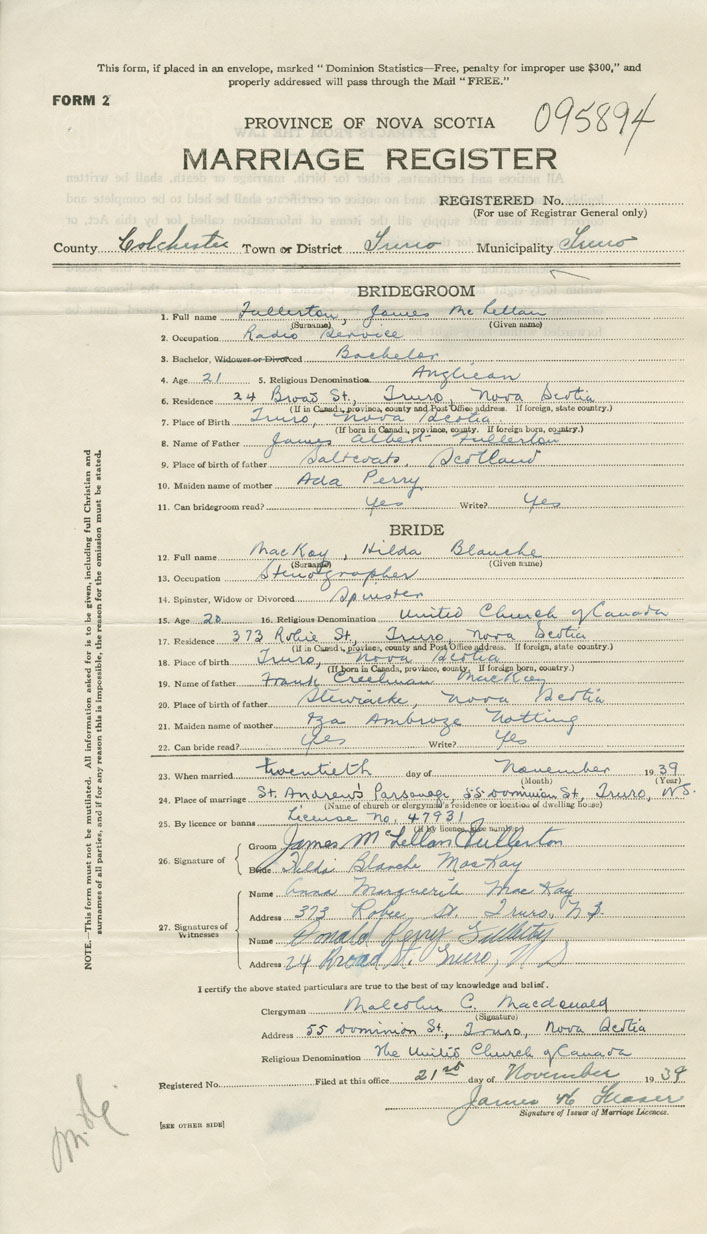 This form, if placed in an envelope, marked "Dominion Statistics—Free, penalty for improper use $300," and
properly addressed will pass through the Mail "FREE."
FORM 2
095894
PROVINCE OF NOVA SCOTIA
MARRIAGE REGISTER
REGISTERED No.
(For use of Registrar General only)
County Colchester Town or District Truro Municipality Truro
BRIDEGROOM
1. Full name Fullerton, James McLellan
(Surname) (Given name)
2. Occupation Radio Service
3. Bachelor, Widower or Divorced Bachelor
4. Age 21 5. Religious Denomination Anglican
6. Residence 24 Broad St., Truro, Nova Scotia
(If in Canada, province, county and Post Office address. If foreign, state country.)
7. Place of Birth Truro, Nova Scotia
(If born in Canada, province, county. If foreign born, country.)
8. Name of Father James Albert Fullerton
9. Place of birth of father Saltcoats, Scotland
10. Maiden name of mother Ada Perry
11. Can bridegroom read? Yes Write? Yes
BRIDE
12. Full name MacKay, Hilda Blanche
(Surname) (Given name)
13. Occupation Stenographer
14. Spinster, Widow or Divorced Spinster
15. Age 20 16. Religious Denomination United Church of Canada
17. Residence 373 Robie St., Truro, Nova Scotia
(If in Canada, province, county and Post Office address. If foreign, state country.)
18. Place of birth Truro, Nova Scotia
(If born in Canada, province, county. If foreign born, country.)
19. Name of father Frank Creelman MacKay
20. Place of birth of father Stewiacke, Nova Scotia
21. Maiden name of mother Iza Ambroze Nutting
22. Can bride read? Yes Write? Yes
23. When married twentieth day of November 1939
(Month) (Year)
24. Place of marriage St. Andrew's Parsonage, 55 Dominion St., Truro, N.S.
(Name of church or clergyman's residence or location of dwelling house)
25. By licence or banns License No. 47931
(If by licence, give number)
26. Signature of
Groom James McLellan Fullerton
Bride Hilda Blanche MacKay
27. Signatures of Witnesses
Name Anna Marguerite MacKay
Address 373 Robie St. Truro, N.S.
Name Donald Perry
Address 24 Broad St. Truro, N S
I certify the above stated particulars are true to the best of my knowledge and belief.
Clergyman Malcolm C. Macdonald
(Signature)
Address 55 Dominion St., Truro, Nova Scotia
Religious Denomination The United Church of Canada
Registered No. Filed at this office 21st day of November 1939
James Fraser
Signature of Issuer of Marriage Licences.
[SEE OTHER SIDE]
NOTE.—This form must not be mutilated. All information asked for is to be given, including full Christian and
surnames of all parties, and if for any reason this is impossible, the reason for the omission must be stated.